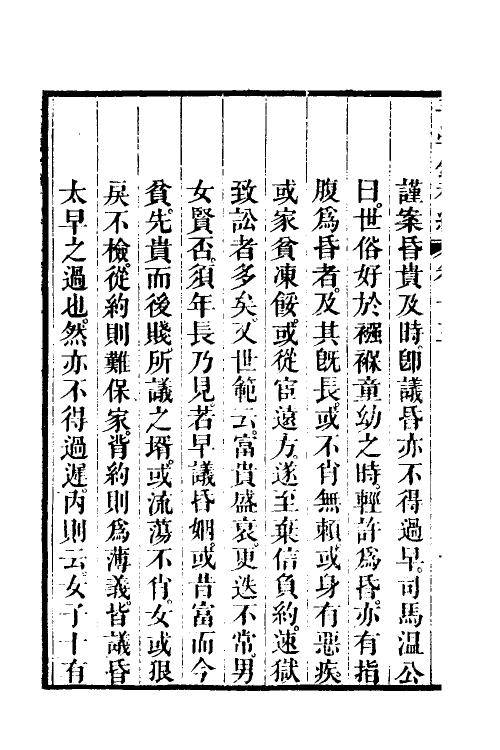 謹案昏貴及時。卽議昏亦不得過早。司馬溫公
曰。世俗好於襁褓童幼之時。輕許爲昏。亦有指
腹爲昏者。及其旣長。或不肖無賴。或身有惡疾。
或家貧凍餒。或從宦遠方。遂至棄信負約。速獄
致訟者多矣。又世範云。富貴盛衰。更迭不常。男
女賢否。須年長乃見。若早議昏姻。或昔富而今
貧。先貴而後賤。所議之壻。或流蕩不肖。女或狠
戾不檢。從約則難保家。背約則爲薄義。皆議昏
太早之過也。然亦不得過遲。內則云。女子十有